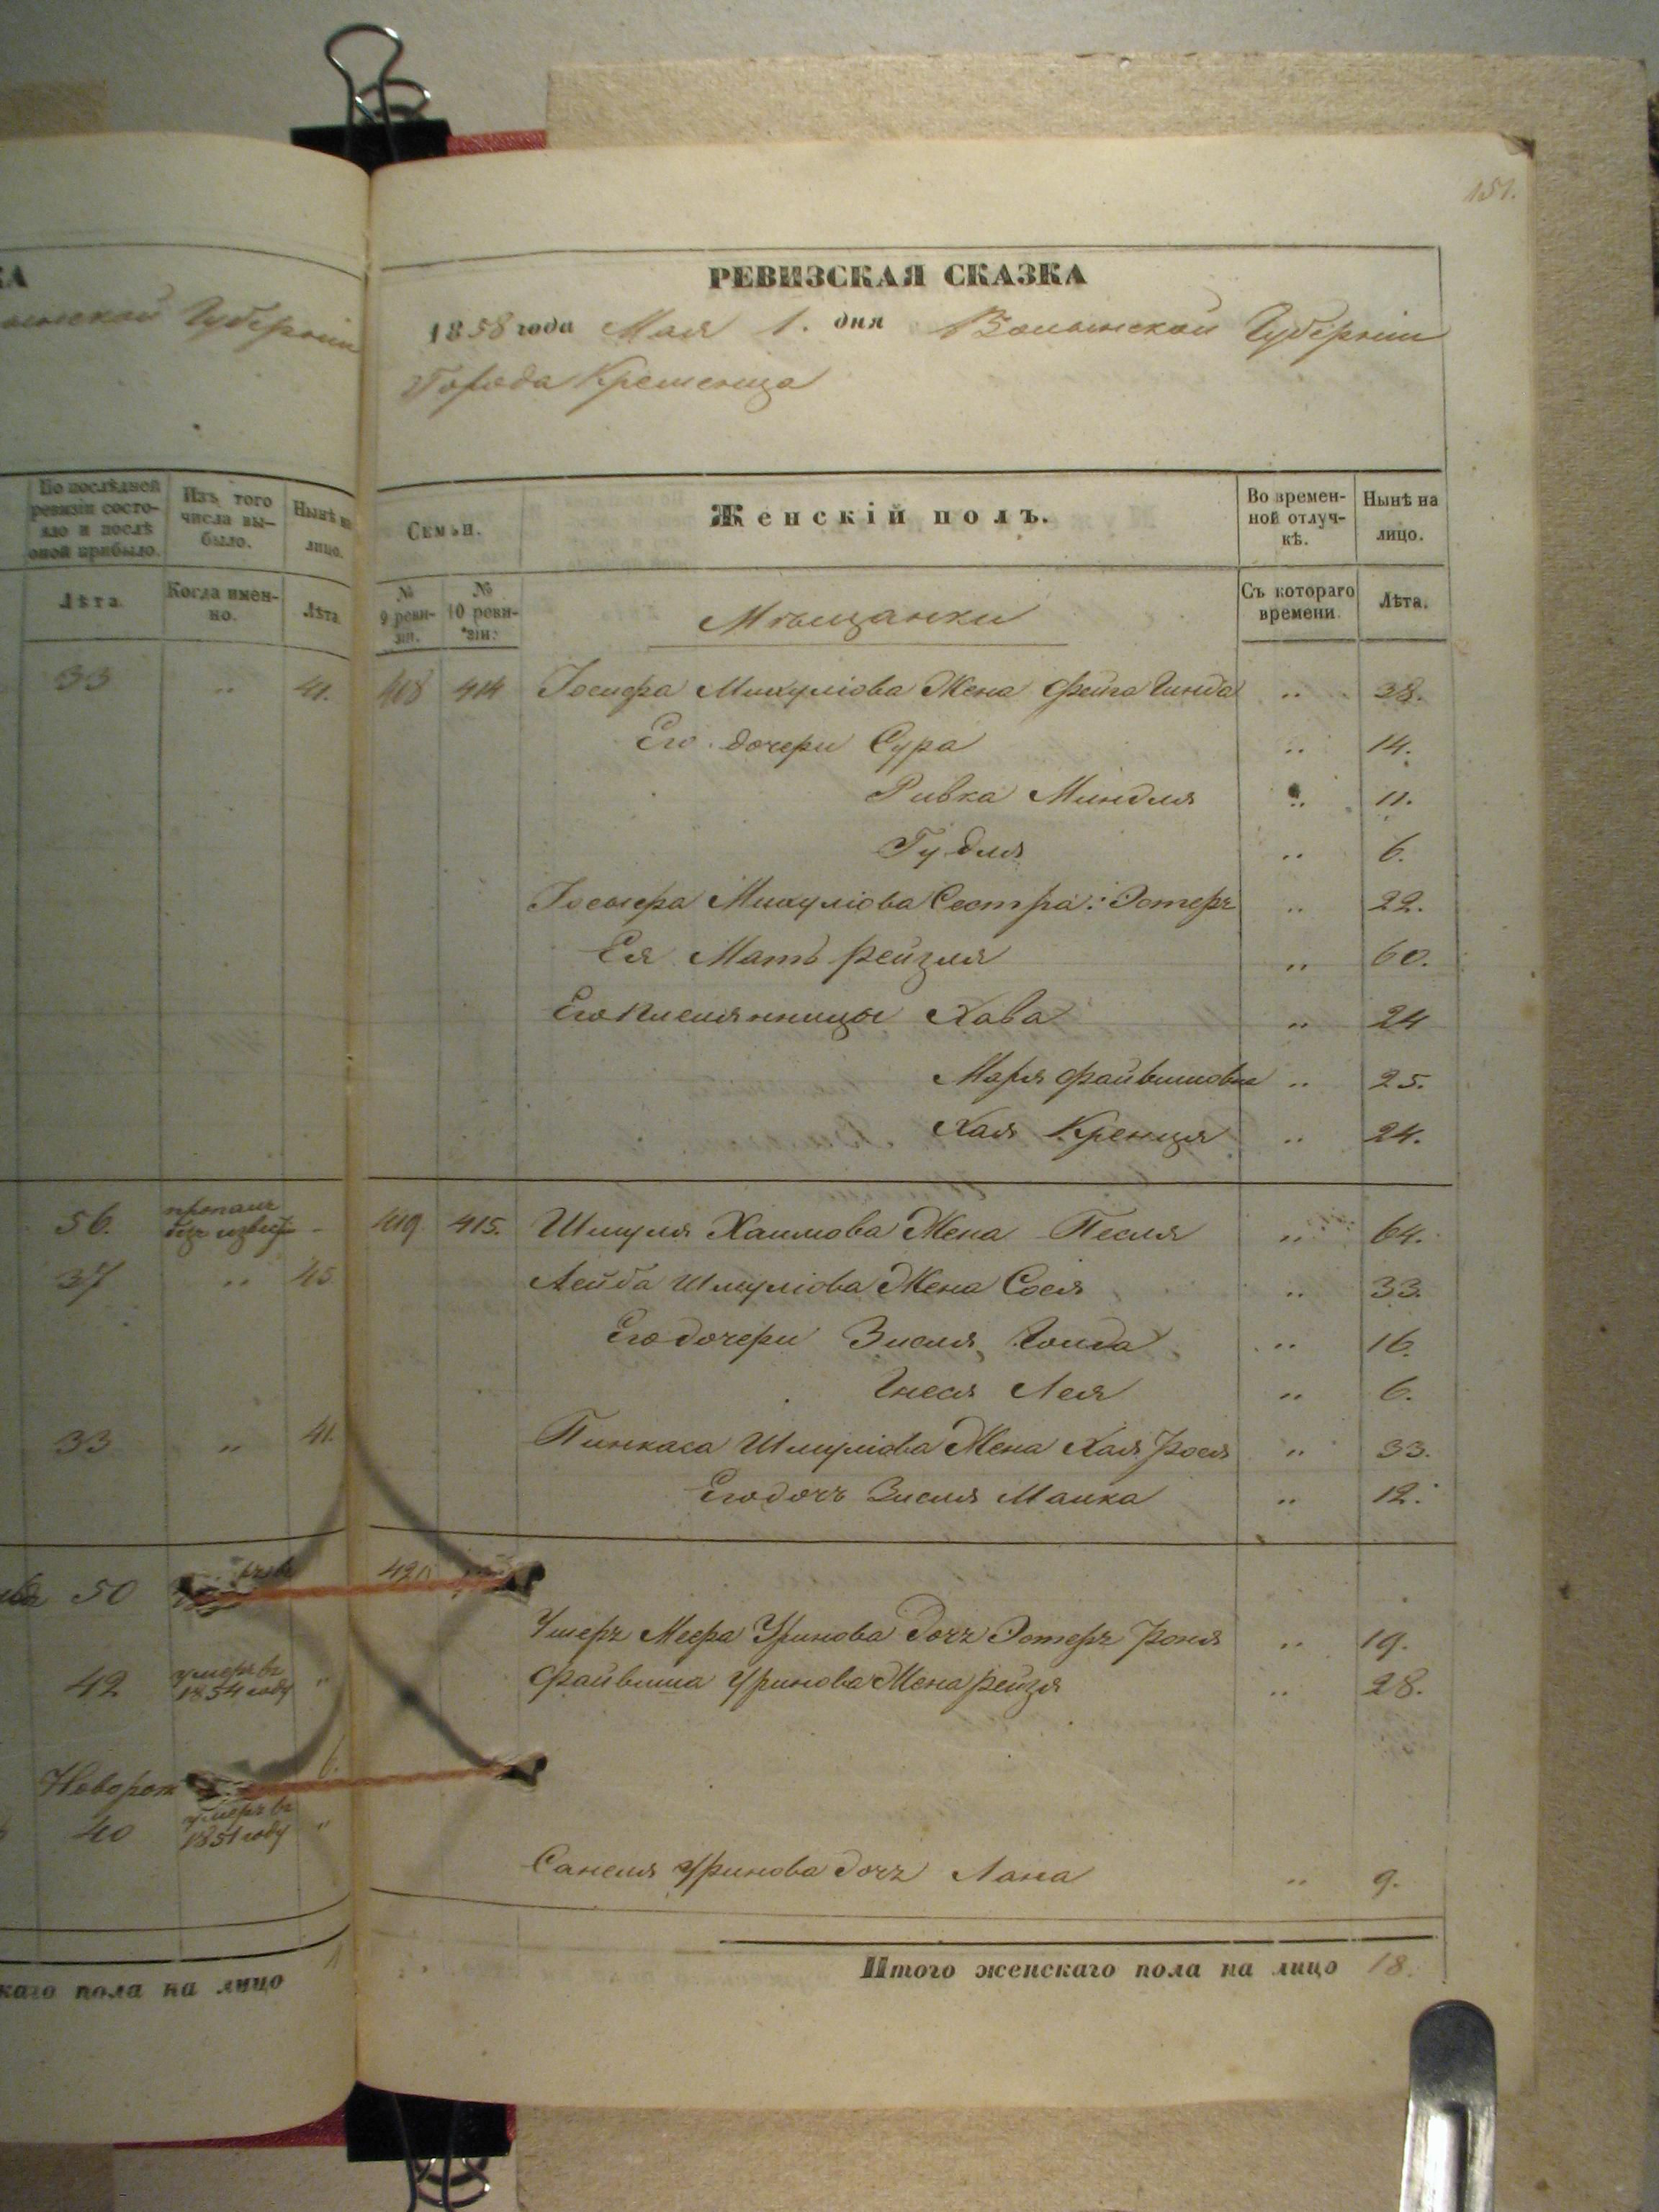 КА
Губерніи
По последней
ревизіи состо-
яло и послѣ
оной прибыло.
Изъ того
числа вы-
было.
Нынѣ на
лицо.
Лѣта
Когда имен-
но.
Лѣта
33 " 41.
56. пропалъ
безъ извест -
37 " 45
33 " 41.
50
42 умеръ въ
1854 году "
Новорож 6.
40 умеръ въ
1851 году "
каго пола на лицо
151.
РЕВИЗСКАЯ СКАЗКА
1858 года Мая 1. дня Волынской Губерніи
Города Кременца
Семьи.
Женскій полъ.
Во времен-
ной отлуч-
кѣ.
Нынѣ на
лицо.
№
9 реви-
зіи.
№
10 реви-
зіи.
Мѣщанки
Съ котораго
времени.
Лѣта.
418 414 Іосифа Михуліова Жена Фейга Гинда " 38.
Его дочери Сура " 14.
Ривка Миндля " 11.
Гудля " 6.
Іосифа Михуліова Сестра: Эстеръ " 22.
Ея Мать Рейзля " 60.
Его племянницы Хава " 24
Маря Файвишовна " 25.
Хая Кренця " 24.
419 415. Шмуля Хаимова Жена Песля " 64.
Лейба Шмуліова Жена Сося " 33.
Его дочери Зисля, Голда " 16.
Гнеся Лея " 6.
Пинкаса Шмуліова Жена Хая Рося " 33.
Его дочь Зисля Малка " 12.
421
Умеръ Меера Уринова дочь Эстеръ Роня " 19.
Файвиша Уринова Жена Рейзя " 28.
Санеля Уринова дочь Лана " 9.
Итого женскаго пола на лицо 18.